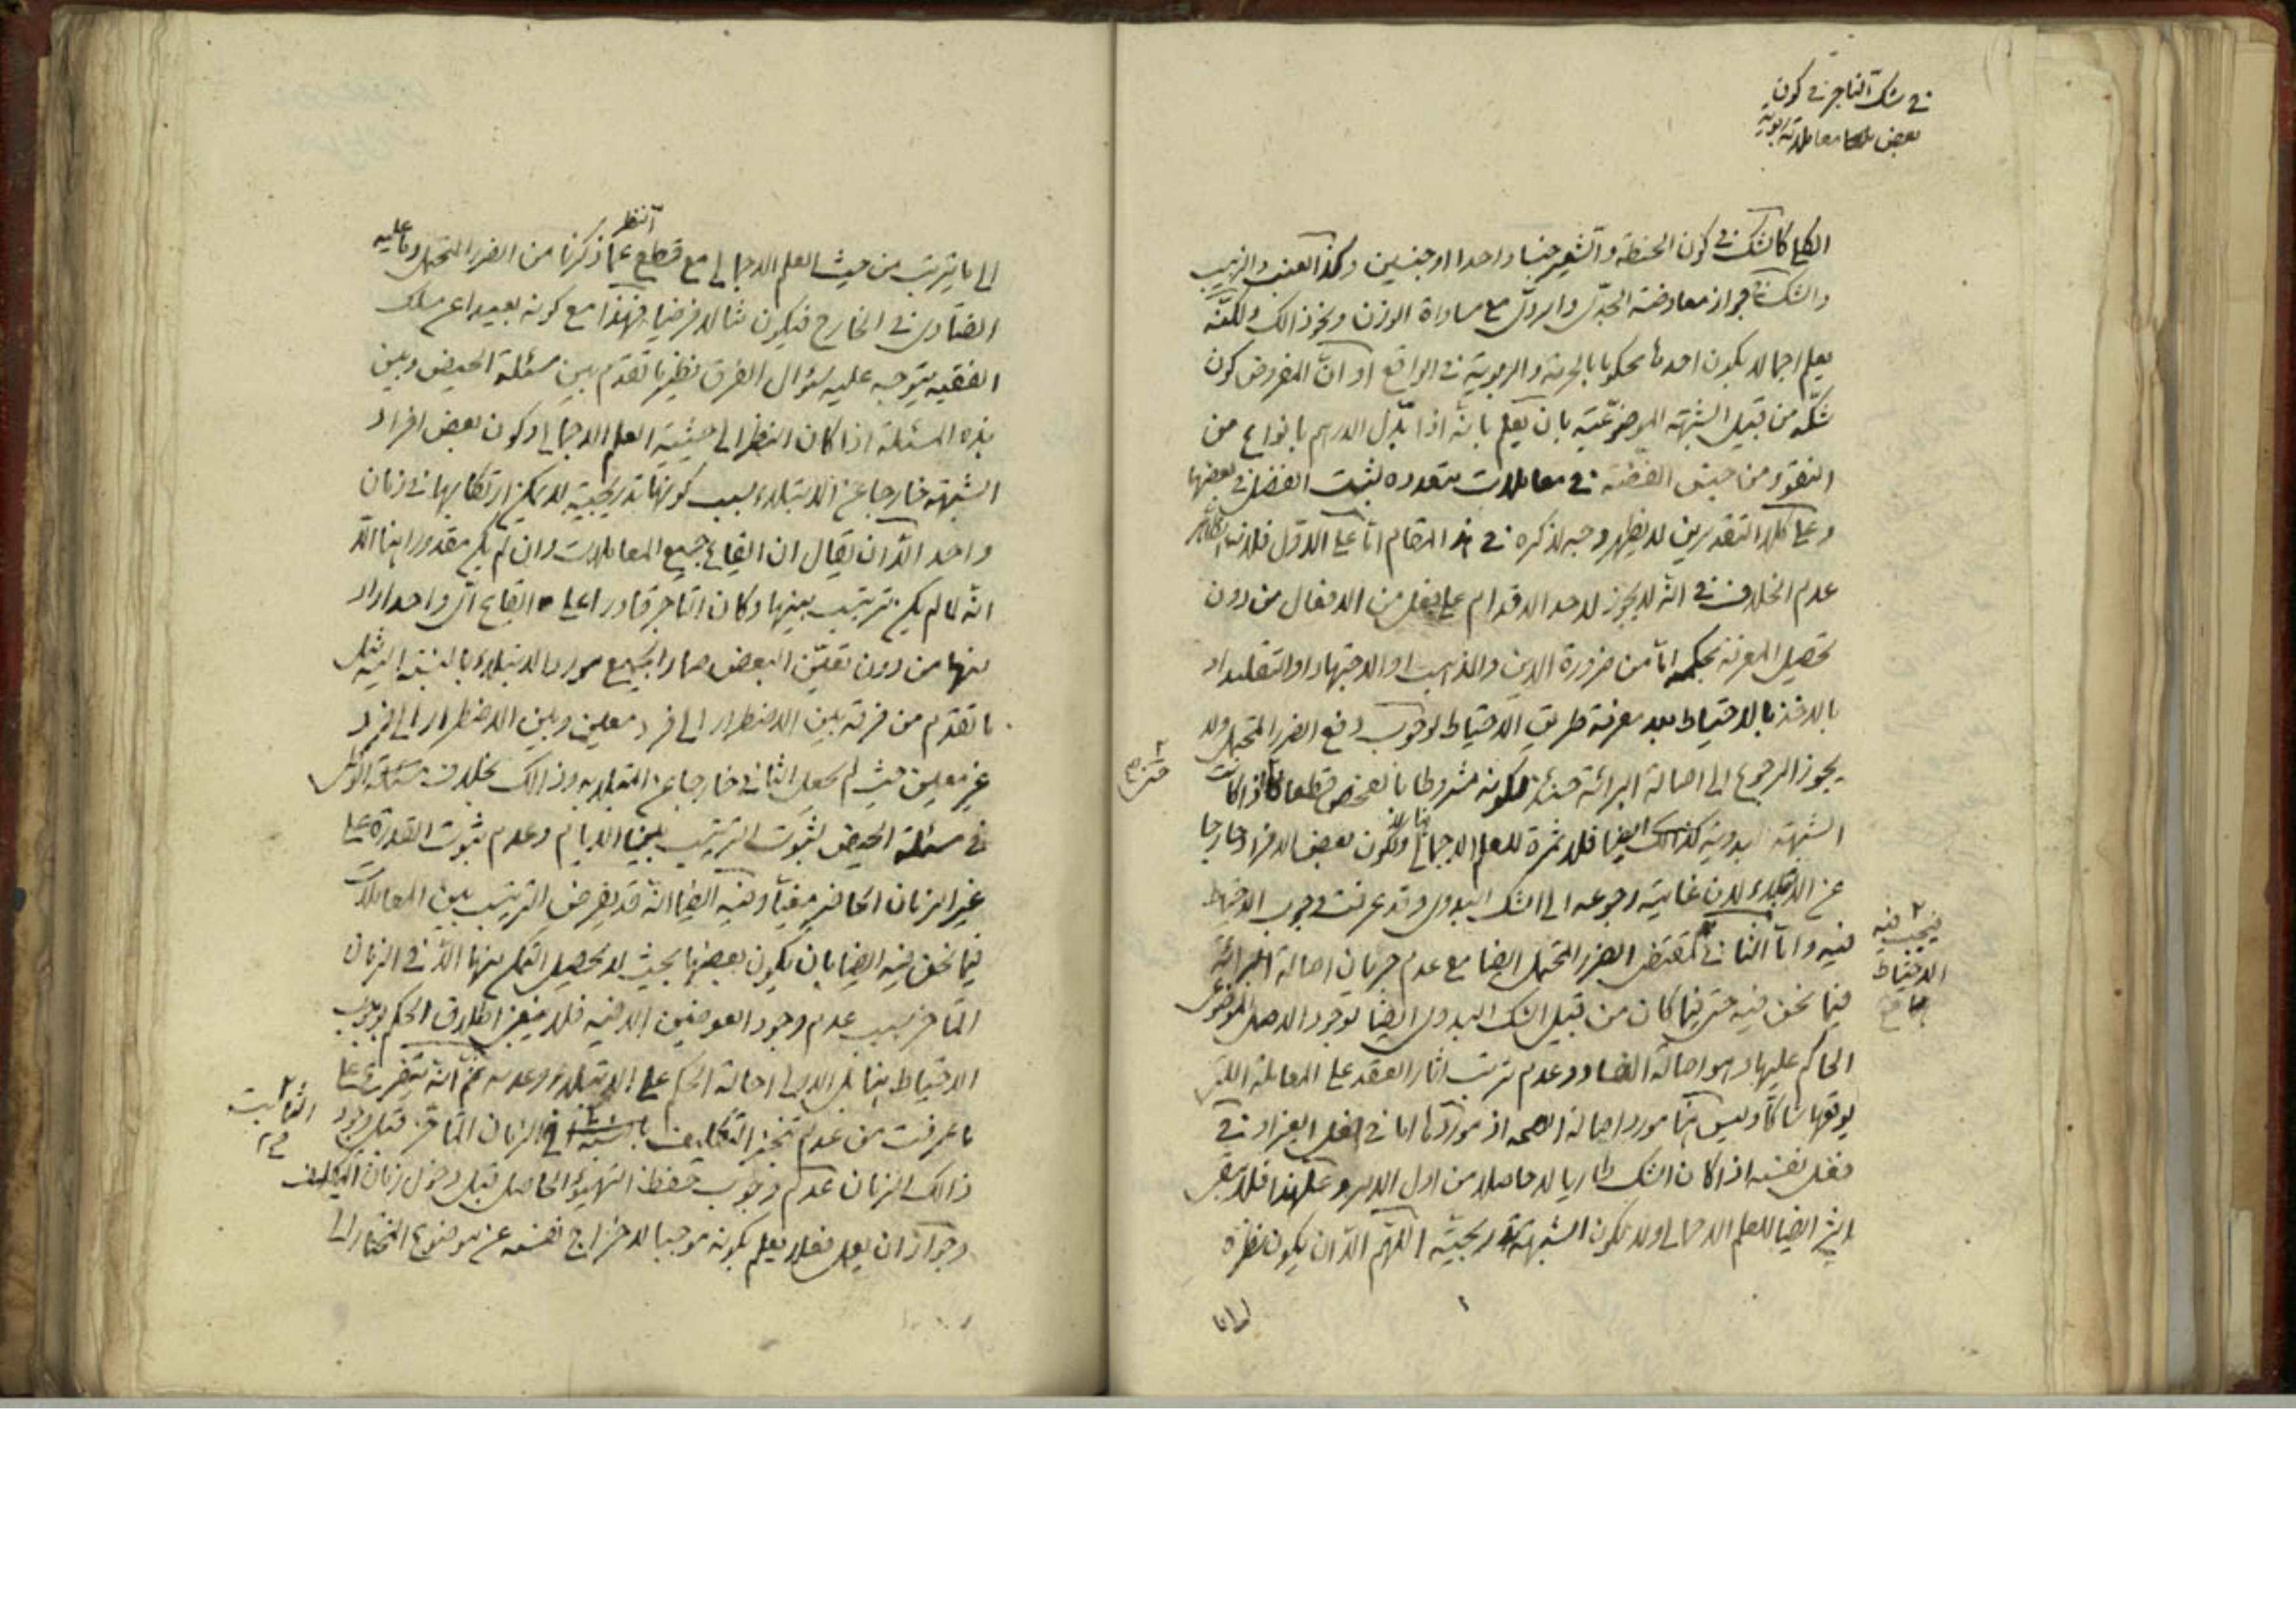 في شك التاجر في كون
بعض معاملاته ربوية
الكلي كالشك في كون الحنطة والشعير جنسا واحدا او جنسين وكذا العنب والزبيب
والشك في جواز معاوضة الجيد والردي مع مساواة الوزن ونحو ذالك ولكنه
يعلم اجمالا بكون احدها محكوما بالحرمة والربوية في الواقع او ان المفروض كون
شكه من قبيل الشبهة الموضوعية بان يعلم بانه اذا بدل الدرهم بانواع من
النقود من جنس الفضة في معاملات متعدده لثبت الفضل في بعضها
وعلى كلا التقديرين لا يظهر وجه لذكره في هذا المقام اما على الاول فلان الظاهر
عدم الخلاف في انه لا يجوز لاحد الاقدام على فعل من الافعال من دون
تحصيل المعرفة بحكمه اما من ضرورة الدين والمذهب او الاجتهاد او التقليد او
بالاخذ بالاحتياط بعد معرفة طريق الاحتياط لوجوب دفع الضرر المحتمل ولا
يجوز الرجوع الى اصالة البرائة حينئذ لكونه مشروطا بالفحص قطعا فاذا كانت
الشبهة البدوية كذالك ايضا فلا ثمرة للعلم الاجمالي ولكون بعض الافراد خارجا
عن الابتلاء لان غايته رجوعه الى الشك البدوي وقد عرفت وجوب الاحتياط
فيه واما الثاني فمقتضى الضرر المحتمل ايضا مع عدم جريان اصالة البرائة
فيجب فيه
الاحتياط
فيما نحن فيه حتى فيما كان من قبيل الشك البدوي ايضا لوجود الاصل الموضوعي
الحاكم عليها وهو اصالة الفساد وعدم ترتب اثار العقد على المعاملة التي
يوقعها شاكا وليس هنا مورد اصالة الصحه اذ موردها اما في فعل الغير او في
فعل نفسه اذا كان الشك طاريا لا حاصلا من اول الامر وعلى هذا فلا يبقى
اثر ايضا للعلم الاجمالي ولا لكون الشبهة تدريجية اللهم الا ان يكون نظره
الى ما يترتب من حيث العلم الاجمالي مع قطع النظر عما ذكرنا من الضرر المحتمل وما عليه
الفتاوى في الخارج فيكون مثالا فرضيا فهذا مع كونه بعيدا عن مسلك
الفقيه يتوجه عليه سؤال الفرق نظير ما تقدم بين مسئلة الحيض وبين
هذه المسئلة اذا كان النظر الى حيثية العلم الاجمالي وكون بعض افراد
الشبهة خارجا عن الابتلاء بسبب كونها تدريجية لا يمكن ارتكابها في زمان
واحد الا ان يقال ان ايقاع جميع المعاملات وان لم يكن مقدورا هنا الا
انه لما لم يكن ترتيب بينها وكان التاجر قادرا على ايقاع اي واحد اراد
منها من دون تعين البعض صار الجميع موردا لابتلاء بالنسبة اليه مثل
ما تقدم من فرقه بين الاضطرار الى فرد معين وبين الاضطرار الى فرد
غير معين حيث لم يجعل الثاني خارجا عن الابتلاء به وذالك بخلاف
في مسئلة الحيض لثبوت الترتيب بين الايام وعدم ثبوت القدرة على
غير الزمان الحاضر وفيه ايضا انه قد يفرض الترتيب بين المعاملات
فيما نحن فيه ايضا بان يكون بعضها بحيث لا يحصل التمكن منها الا في الزمان
المتاخر بسبب عدم وجود العوضين الا فيه فلا معنى لاطلاق الحكم بوجوب
الاحتياط هنا بل الاولى احالة الحكم على الابتلاء وعدمه ثم انه يتفرع على
ما عرفت من عدم تنجز التكليف الثابت في الزمان المتاخر قبل وجود
ذالك الزمان عدم وجوب حفظ التهيؤ الحاصل قبل دخول زمان التكليف
وجواز ان يعمل فعلا يعلم بكونه موجبا لاخراج نفسه عن موضوع المختار الى